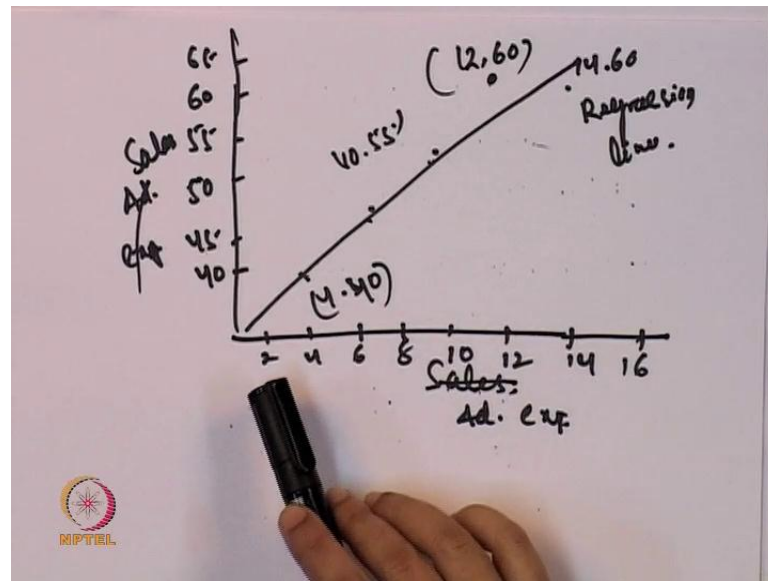 65
60
55
50
45
40
Sales
Ad.
exp
(12,60)
14.60
Regression
line.
10.55)
(4.40)
2 4 6 8 10 12 14 16
Sales.
Ad. exp
NPTEL